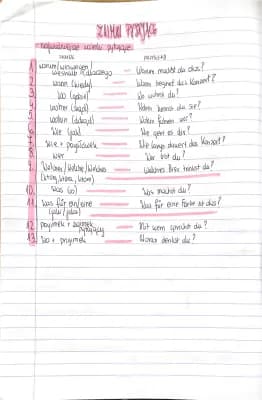 ZAIMKI PYTAJĄCE
najważniejsze zaimki pytające
zaimek przykład
1. warum/weswegen
weshalb (dlaczego) Warum machst du das?
2. wann (kiedy) Wann beginnt das Konzert?
3. wo (gdzie) Wo wohnst du?
4. woher (skąd) Woher kennst du sie?
5. wohin (dokąd) Wohin fahren wir?
6. Wie (jak) Wie geht es dir?
7. wie + przymiotnik Wie lange dauert das Konzert?
8. wer Wer bist du?
9. Welcher/Welche/Welches Welches Bier trinkst du?
(który, która, które)
10. Was (co) Was machst du?
11. Was für ein/eine Was für eine Farbe ist das?
(jaki/jaka)
12. przyimek + zaimek Mit wem sprichst du?
pytający
13. Wo + przyimek Woran denkst du?